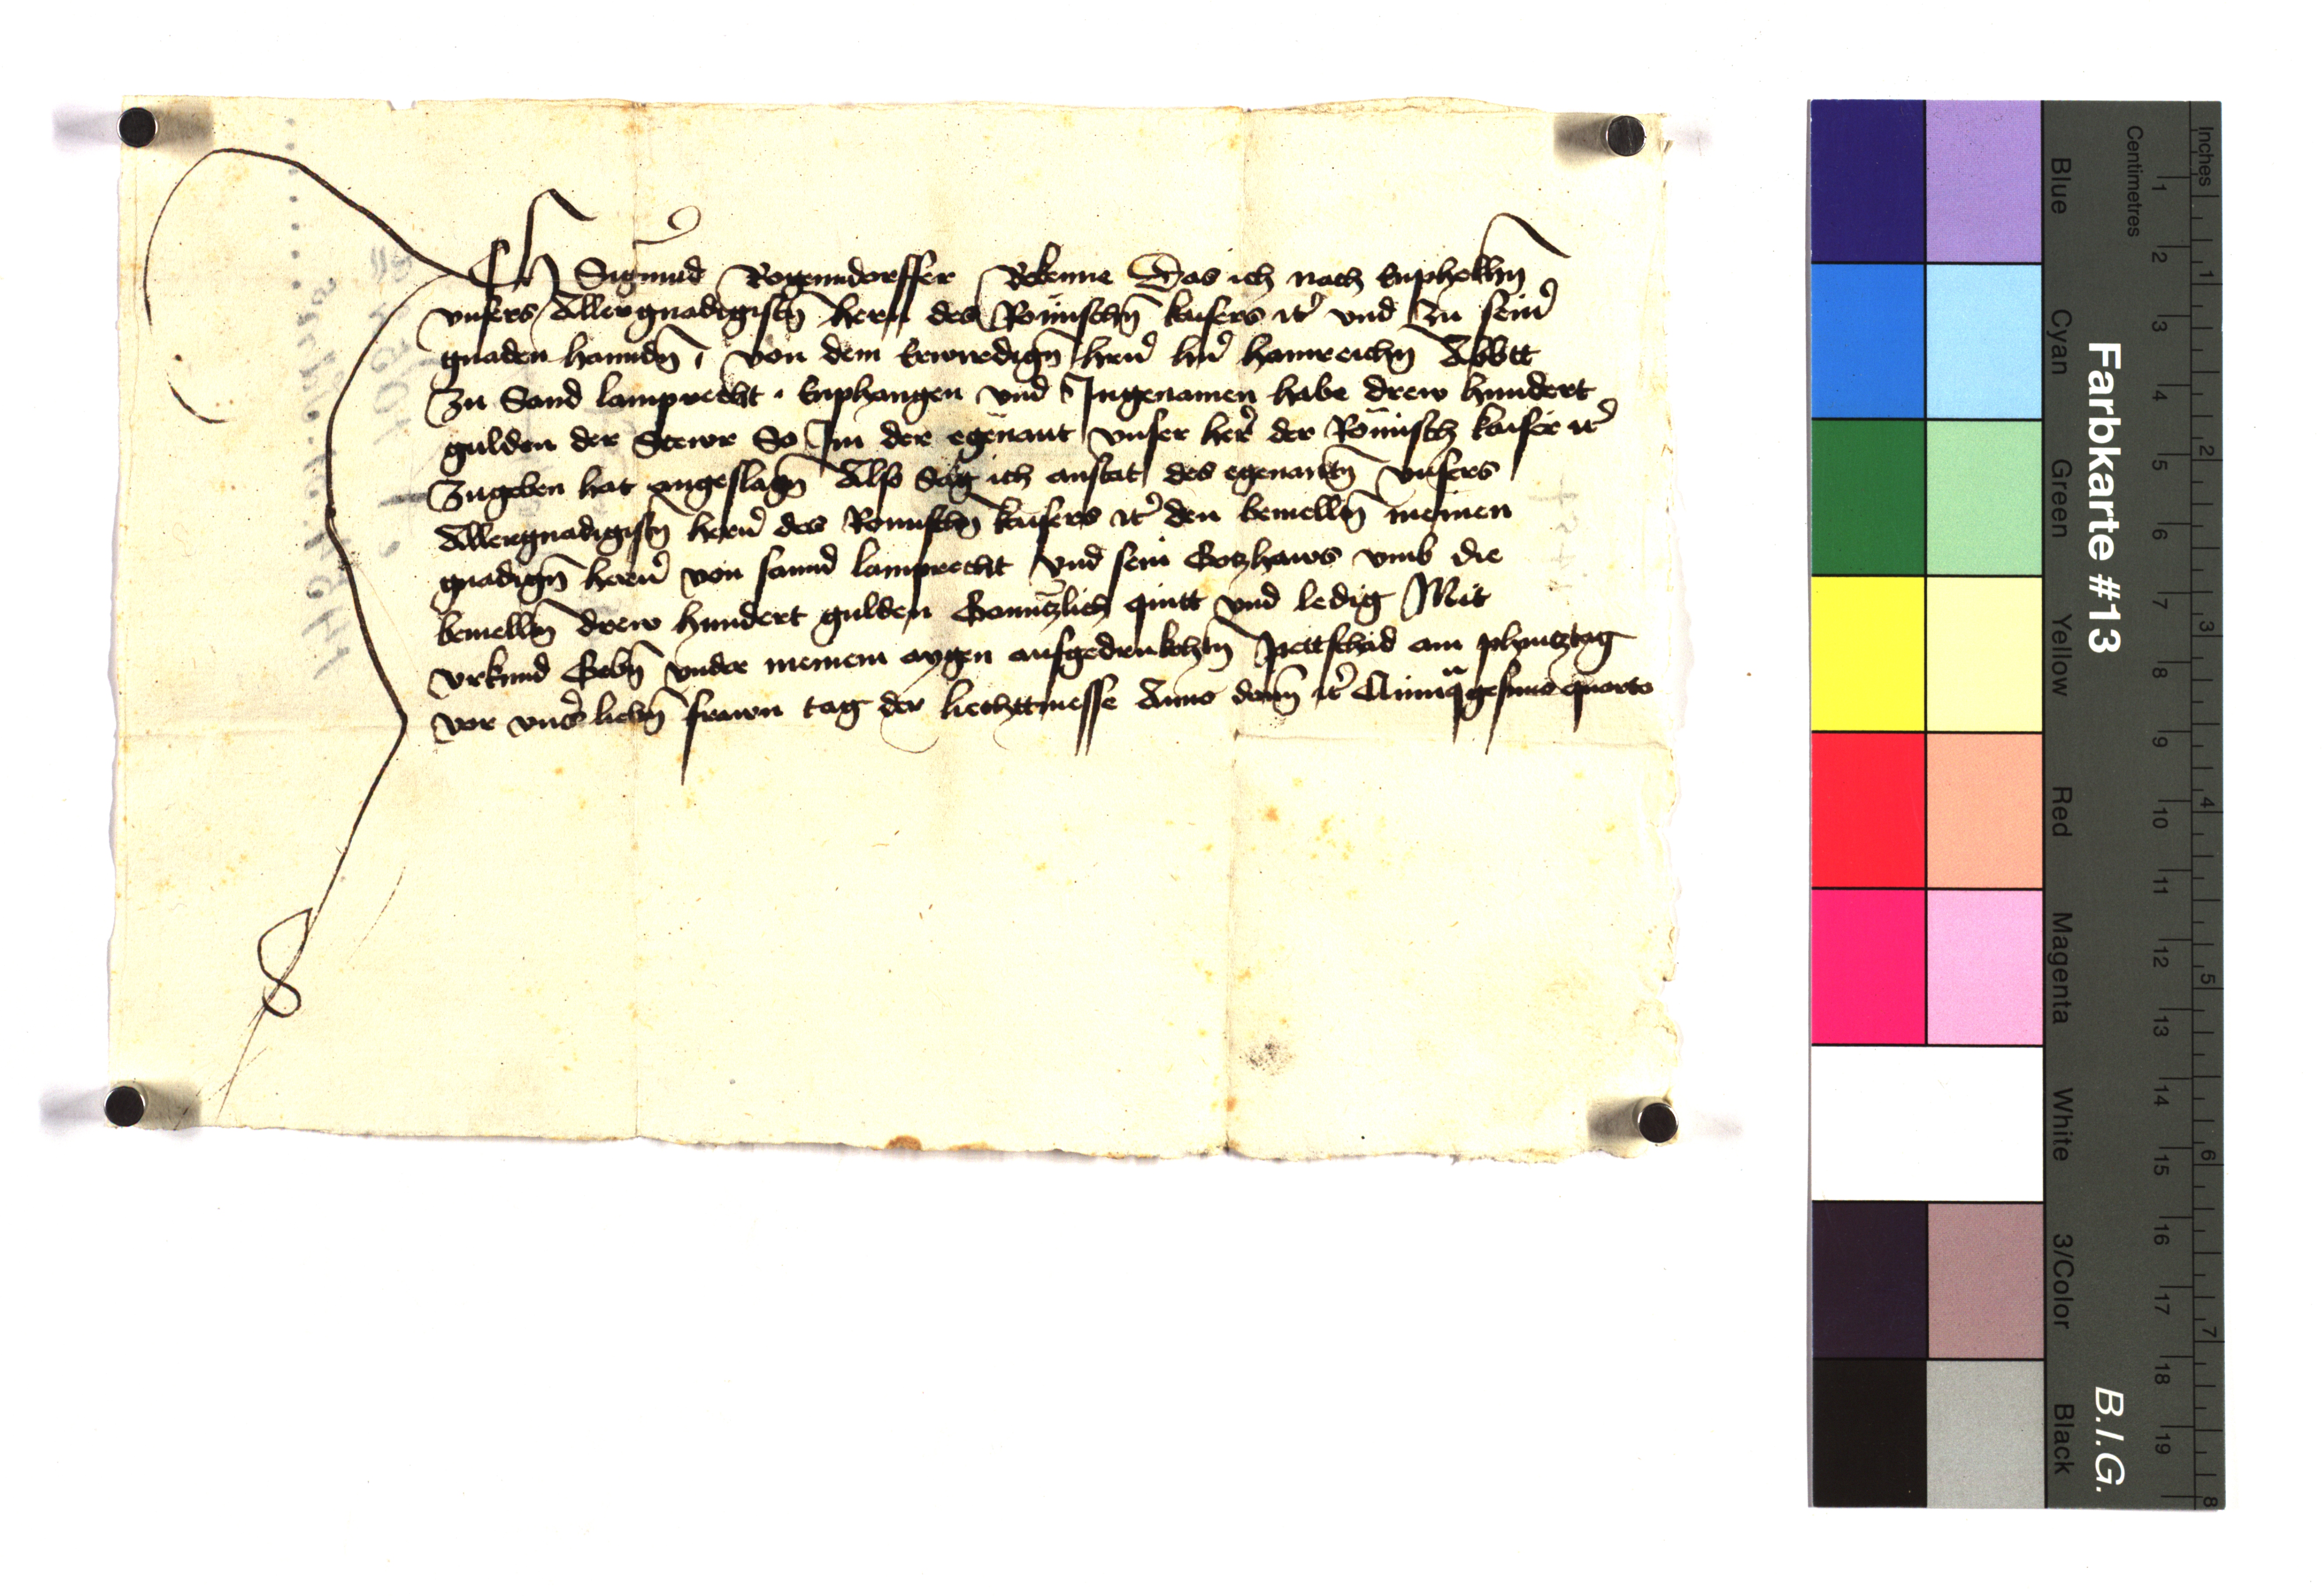 Ich Sigmund Rogenndorffer Bekenne Das ich nach Enphelhn̄
vnsers Allergnadigistn̄ hern des Römischn̄ kaisers ꝛc̄ vnd Zu seinr̄
gnaden hanndn̄ von dem Erwirdign̄ hern̄ hn̄ hainreichn̄ Abbtt
Zu Sand lamprecht · Enphangen vnd Ingenomen habe drew hundert
gulden der Stewr So Im der egenant vnser her̄ der Römisch kaiser ꝛc̄
Zugeben hat angeslagn̄ Also Sag ich anstat des egenantn̄ vnsers
Allergnadigistn̄ hern̄ des Romischn̄ kaisers ꝛc̄ den bemelltn̄ meinen
gnadign̄ hern̄ von sannd lamprecht vnd sein Gotzhaws vmb die
bemelltn̄ drew hundert gulden Genntzlich quitt vnd ledig Mit
vrkund Gebn̄ vnder meinem aygen aufgedrukchtn̄ Pettschad am phintztag
vor vnsr̄ liebn̄ frawn tag der liechttmesse Anno domī ꝛc̄ quarto
Farbkarte #13
B.I.G.
Blue
Cyan
Green
Yellow
Red
Magenta
White
3/Color
Black
Centimetres
1 2 3 4 5 6 7 8 9 10 11 12 13 14 15 16 17 18 19
Inches
1 2 3 4 5 6 7 8